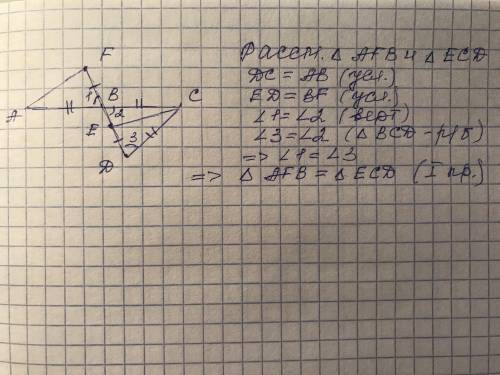 F
B
1
C
2
A
E
3
D
Рассм. △ AFB и △ ECD
DC = AB (усл.)
ED = BF (усл.)
∠1 = ∠2 (верт)
∠3 = ∠2 (△ BCD - р/б)
=> ∠1 = ∠3
=> △ AFB = △ ECD (I пр.)